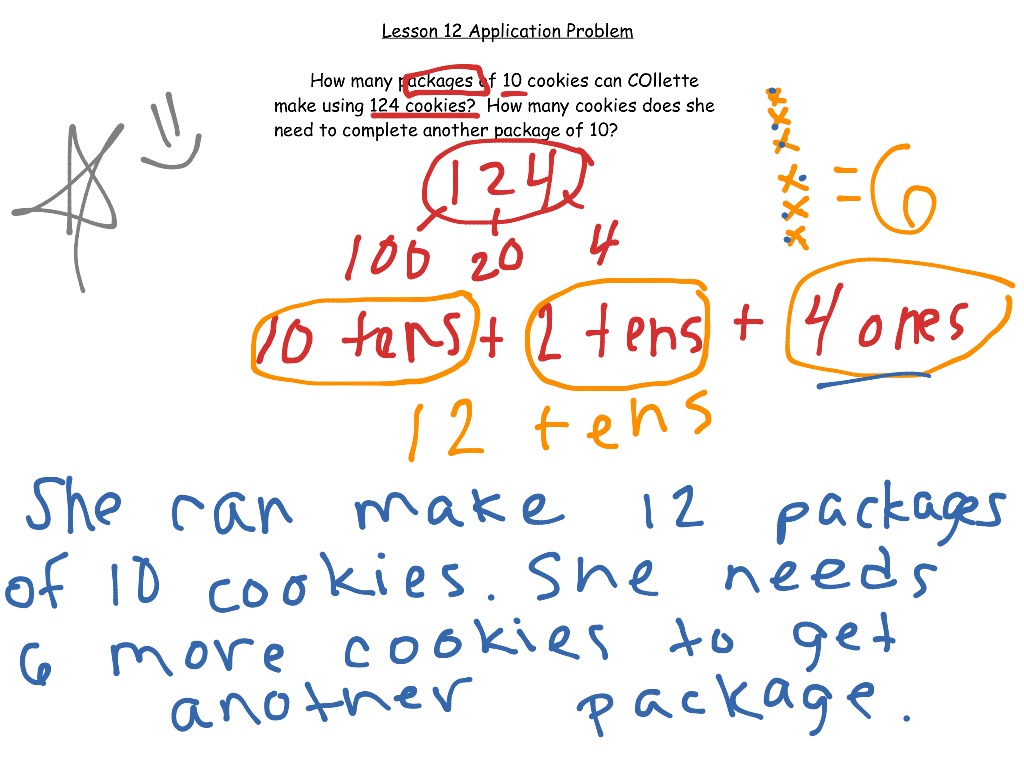 Lesson 12 Application Problem
How many packages of 10 cookies can COllette
make using 124 cookies? How many cookies does she
need to complete another package of 10?
124
100 20 4
x x x x x x = 6
10 tens + 2 tens + 4 ones
12 tens
She can make 12 packages
of 10 cookies. She needs
6 more cookies to get
another package.